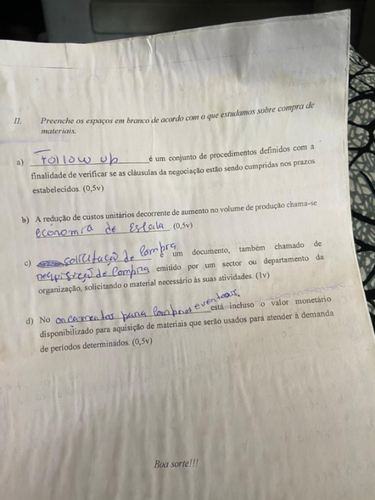 II. Preenche os espaços em branco de acordo com o que estudamos sobre compra de
materiais.
a) Follow up é um conjunto de procedimentos definidos com a
finalidade de verificar se as cláusulas da negociação estão sendo cumpridas nos prazos
estabelecidos. (0,5v)
b) A redução de custos unitários decorrente de aumento no volume de produção chama-se
economia de Escala. (0,5v)
c) solicitação de Compra é um documento, também chamado de
requisição de Compra emitido por um sector ou departamento da
organização, solicitando o material necessário às suas atividades. (1v)
d) No orçamentos para compras eventuais está incluso o valor monetário
disponibilizado para aquisição de materiais que serão usados para atender à demanda
de períodos determinados. (0,5v)
Boa sorte!!!